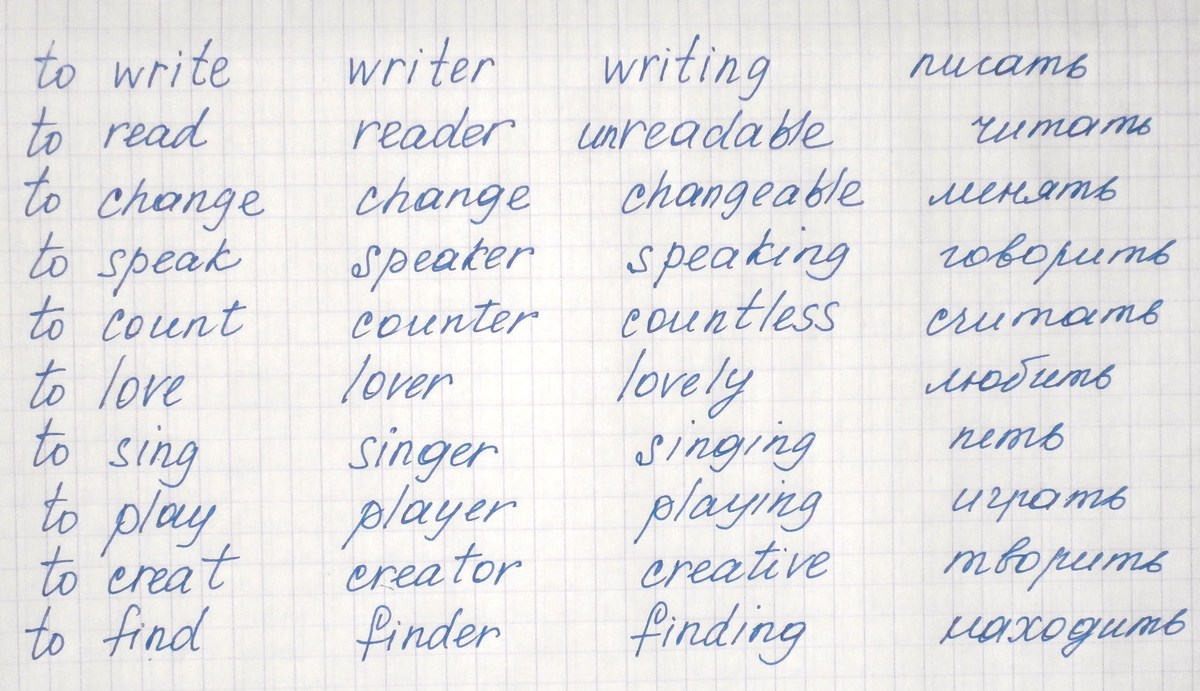 to write writer writing писать
to read reader unreadable читать
to change change changeable менять
to speak speaker speaking говорить
to count counter countless считать
to love lover lovely любить
to sing singer singing петь
to play player playing играть
to creat creator creative творить
to find finder finding находить